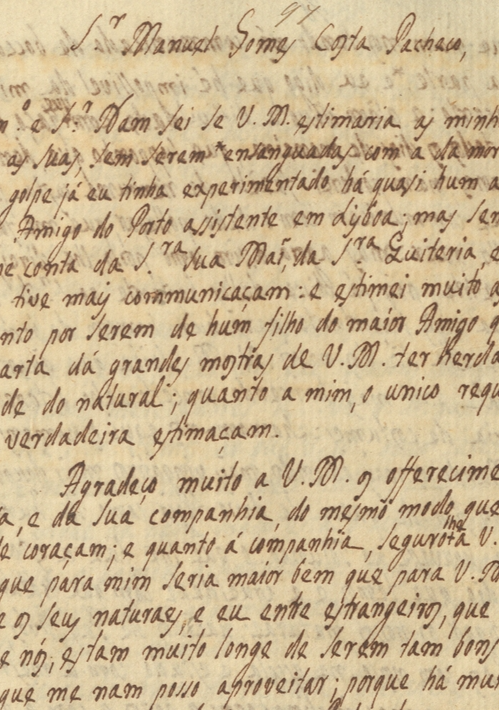 97
S.r Manuel Gomes Costa Pacheco,
m.o e S.r Nam sei se V. M. estimaria as minh
as suas, sem serem ensanguadas com a da mor
golpe já eu tinha experimentado há quasi hum a
Amigo do Porto assistente em Lisboa; mas ser
e conta da S.ra sua Mai, da S.ra Quiteria, e
tive mais communicaçam: e estimei muito a
nto por serem de hum filho do maior Amigo q
arta dá grandes mostras de V. M. ter herda
de do natural; quanto a mim, o unico requ
verdadeira estimaçam.
Agradeço muito a V. M. os offerecime
a, e da sua companhia, do mesmo modo que
e coraçam; e quanto á companhia, seguro the á V.
que para mim seria maior bem que para V. M
e os seus naturaes, e eu entre estrangeiros, que
e nós, estam muito longe de serem tam bons
que me nam posso aproveitar; porque há mui